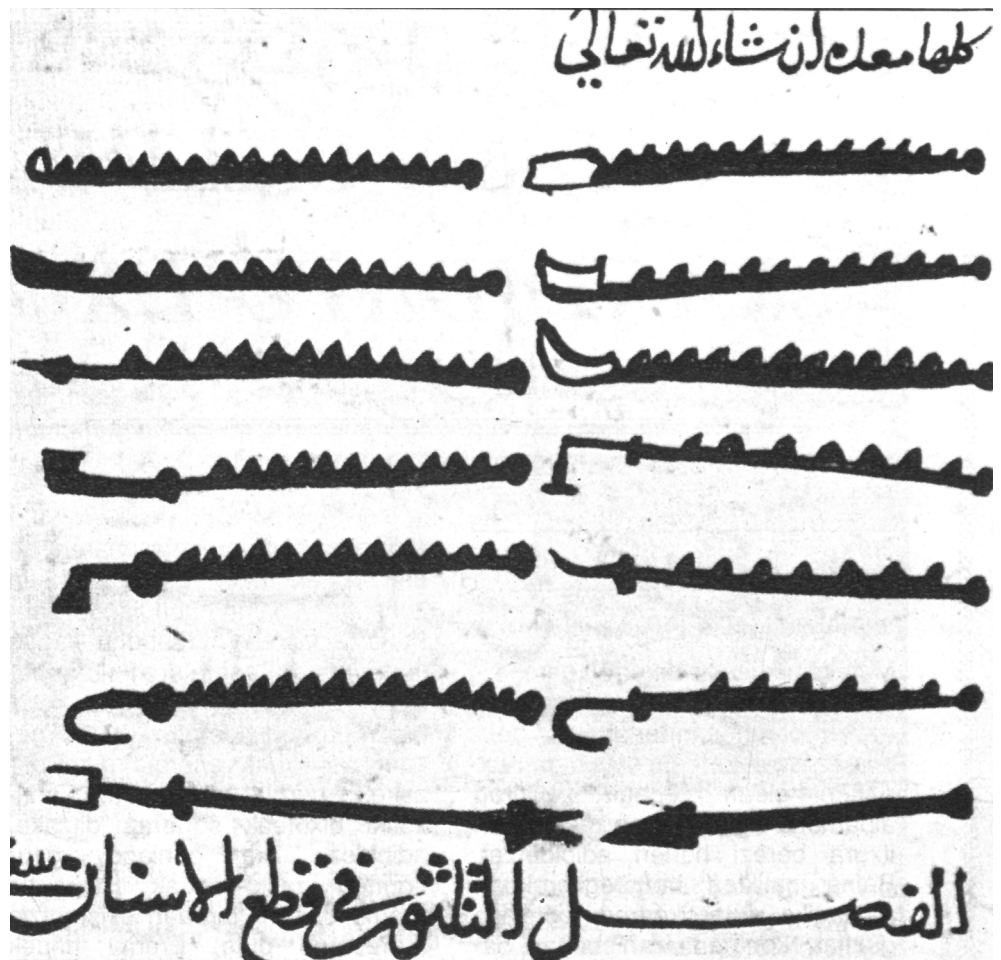 كلها معك ان شاء الله تعالى
الفصل الثلثون في قطع الاسنان